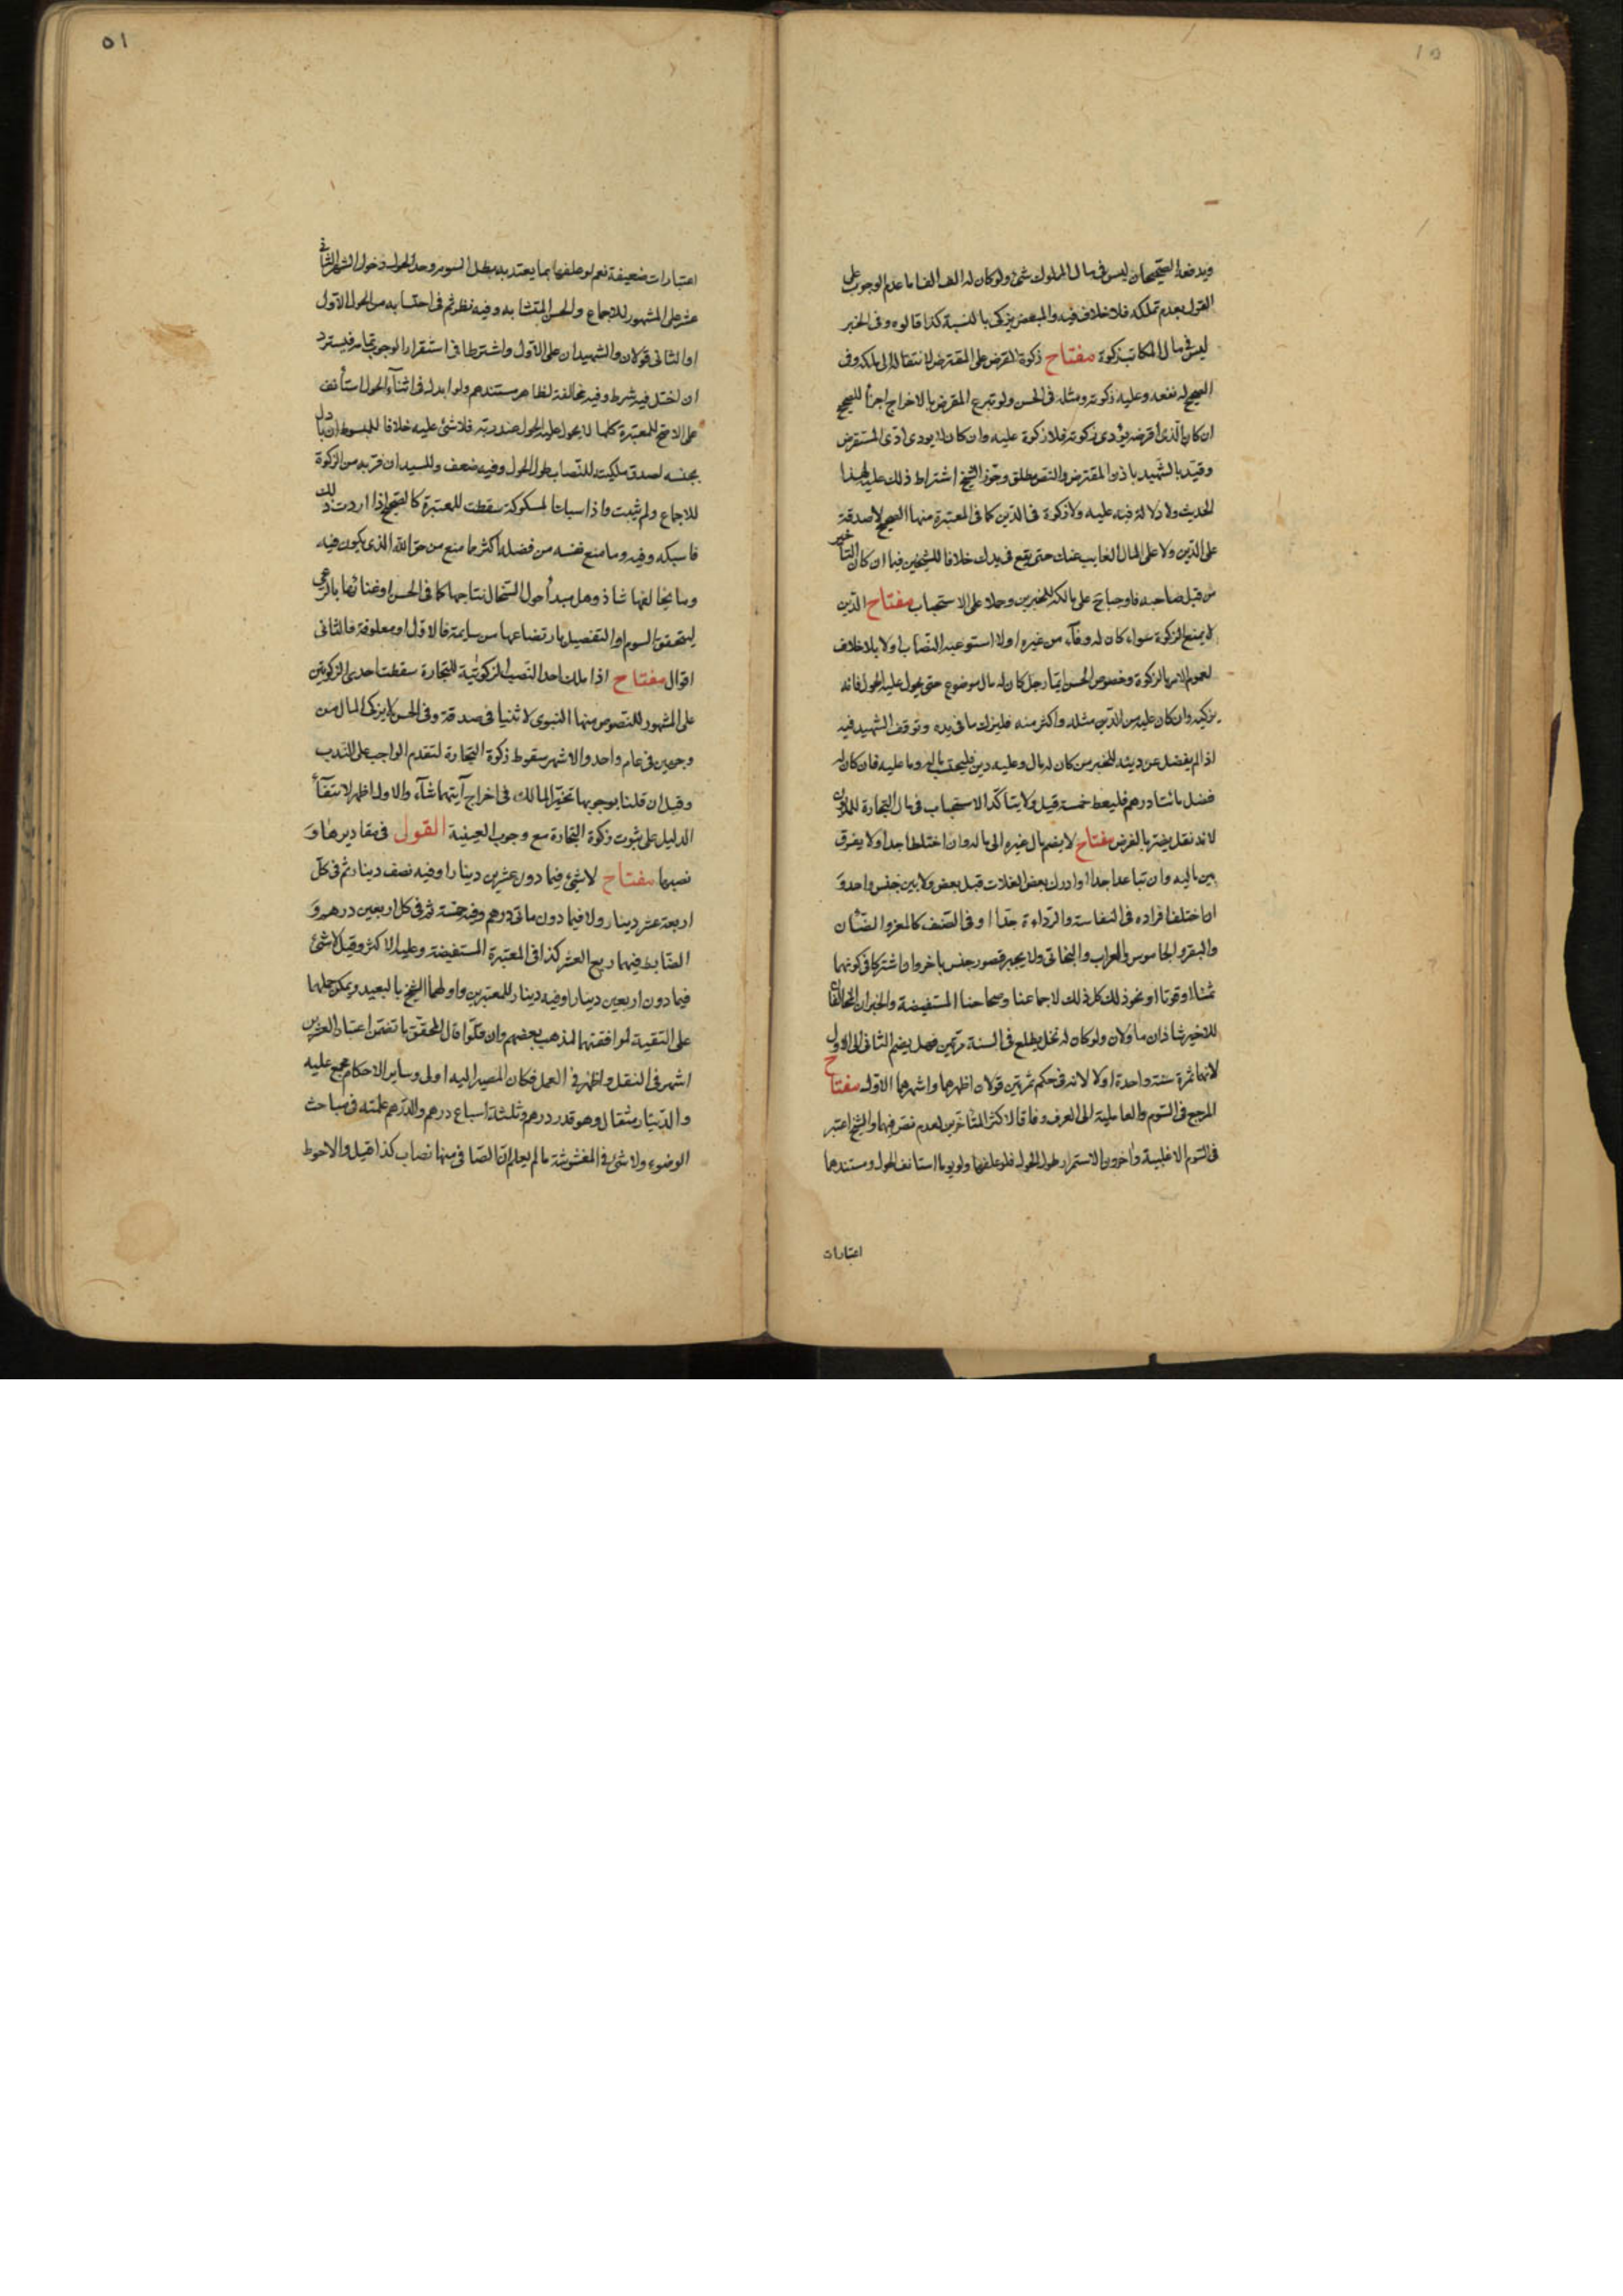 ويدفعه الصحيحان ليس في مال المملوك شئ ولو كان له الف الف اما عدم الوجوب على
القول بعدم تملكه فلا خلاف فيه والمبعض يزكي بالنسبة كذا قالوه وفي الخبر
ليس في مال المكاتب زكوة مفتاح زكوة القرض على المقترض لانتقاله الى ملكه وفي
الصحيح له نفعه وعليه زكوته ومثله في الحسن ولو تبرع المقرض بالاخراج اجزأ للصحيح
ان كان الذي اقرضه يؤدي زكوته فلا زكوة عليه وان كان لا يودى ادى المستقرض
وقيده الشهيد باذن المقترض والنص مطلق وجوز الشيخ اشتراط ذلك عليه لهذا
الحديث ولا دلالة فيه عليه ولا زكوة في الدين كما في المعتبرة منها الصحيح لا صدقة
على الدين ولا على المال الغايب عنك حتى يقع في يدك خلافا للشيخين فيما ان كان التأخير
من قبل صاحبه فاوجباه على مالكه للخبرين وحملا على الاستحباب مفتاح الدين
لا يمنع الزكوة سواء كان له وفاء من غيره او لا استوعب النصاب او لا بلا خلاف
لعموم الامر بالزكوة وخصوص الحسن ايما رجل كان له مال موضوع حتى يحول عليه الحول فانه
يزكيه وان كان عليه من الدين مثله واكثر منه فليزك ما في يده وتوقف الشهيد فيه
اذا لم يفضل عن دينه للخبر من كان له مال وعليه دين فليحتسب ماله وما عليه فان كان له
فضل مائتا درهم فليعط خمسة قيل ولا يتأكد الاستحباب في مال التجارة للمديون
لانه نفل يضر بالفرض مفتاح لا يضم مال غيره الى ماله وان اختلطا جدا ولا يفرق
بين ماليه وان تباعدا جدا او ادرك بعض الغلات قبل بعض ولا بين جنس واحد و
ان اختلف افراده في النفاسة والرداءة جدا او في الصنف كالمعز والضأن
والبقر والجاموس والعراب والبخاتي ولا يجبر قصور جنس باخر وان اشتركا في كونهما
ثمنا او قوتا او نحو ذلك كل ذلك لاجماعنا وصحاحنا المستفيضة والخبران المخالفان
للاخير شاذان ماولان ولو كان له نخل يطلع في السنة مرتين فهل يضم الثاني الى الاول
لانهما ثمرة سنة واحدة او لا لانه في حكم ثمرتين قولان اظهرهما واشهرهما الاول مفتاح
المرجع في السوم والعاملية الى العرف وفاقا لاكثر المتأخرين لعدم نص فيهما والشيخ اعتبر
في السوم الاغلبية واخرون الاستمرار طول الحول فلو علفها ولو يوما استانف الحول ومستندهما
اعتبارات
٥١
اعتبارات ضعيفة نعم لو علفها بما يعتد به بطل السوم وحد الحول دخول الشهر الثاني
عشر على المشهور للاجماع والحسن المتشابه وفيه نظر ثم في احتسابه من الحول الاول
او الثاني قولان والشهيدان على الاول واشترطا في استقرار الوجوب تمامه فيسترد
ان اختل فيه شرط وفيه مخالفة لظاهر مستندهم ولو ابدله في اثناء الحول استأنف
على الاصح للمعتبرة كلما لا يحول عليه الحول عند ربه فلا شئ عليه خلافا للمبسوط ان بادل
بجنسه لصدق ملكيته للنصاب طول الحول وفيه ضعف وللسيد ان فر به من الزكوة
للاجماع ولم يثبت واذا سبات المسكوكة سقطت للمعتبرة كالصحيح اذا اردت ذلك
فاسبكه وفيه وما منع نفسه من فضله اكثر مما منع من حق الله الذي يكون فيه
وما يخالفها شاذ وهل مبدأ حول السخال نتاجها كما في الحسن او غنائها بالرعي
ليتحقق السوم او التفصيل بارتضاعها من سايمة فالاول او معلوفة فالثاني
اقوال مفتاح اذا ملك احد النصب الزكوتية للتجارة سقطت احدى الزكوتين
على المشهور للنصوص منها النبوي لا ثنيا في صدقة وفي الحسن لا يزكى المال من
وجهين في عام واحد والاشهر سقوط زكوة التجارة لتقدم الواجب على الندب
وقيل ان قلنا بوجوبها تخير المالك في اخراج آيتهما شاء والاول اظهر لانتفاء
الدليل على ثبوت زكوة التجارة مع وجوب العينية القول في مقاديرها و
نصبها مفتاح لا شئ فيما دون عشرين دينارا وفيه نصف دينار ثم في كل
اربعة عشر دينار ولا فيما دون مأتي درهم وفيه خمسة ثم في كل اربعين درهم و
الضابط فيهما ربع العشر كذا في المعتبرة المستفيضة وعليه الاكثر وقيل لا شئ
فيما دون اربعين دينارا وفيه دينار للمعتبرين واولهما الشيخ بالبعيد ويمكن حملهما
على التقية لموافقتهما لمذهب بعضهم وان قلوا قال المحقق ما تضمن اعتبار العشرين
اشهر في النقل واظهر في العمل فكان المصير اليه اولى وساير الاحكام مجمع عليه
والدينار مثقال وهو قدر درهم وثلثة اسباع درهم والدرهم علمته في مباحث
الوضوء ولا شئ في المغشوشة ما لم يعلم ان الصافي منها نصاب كذا قيل والاحوط